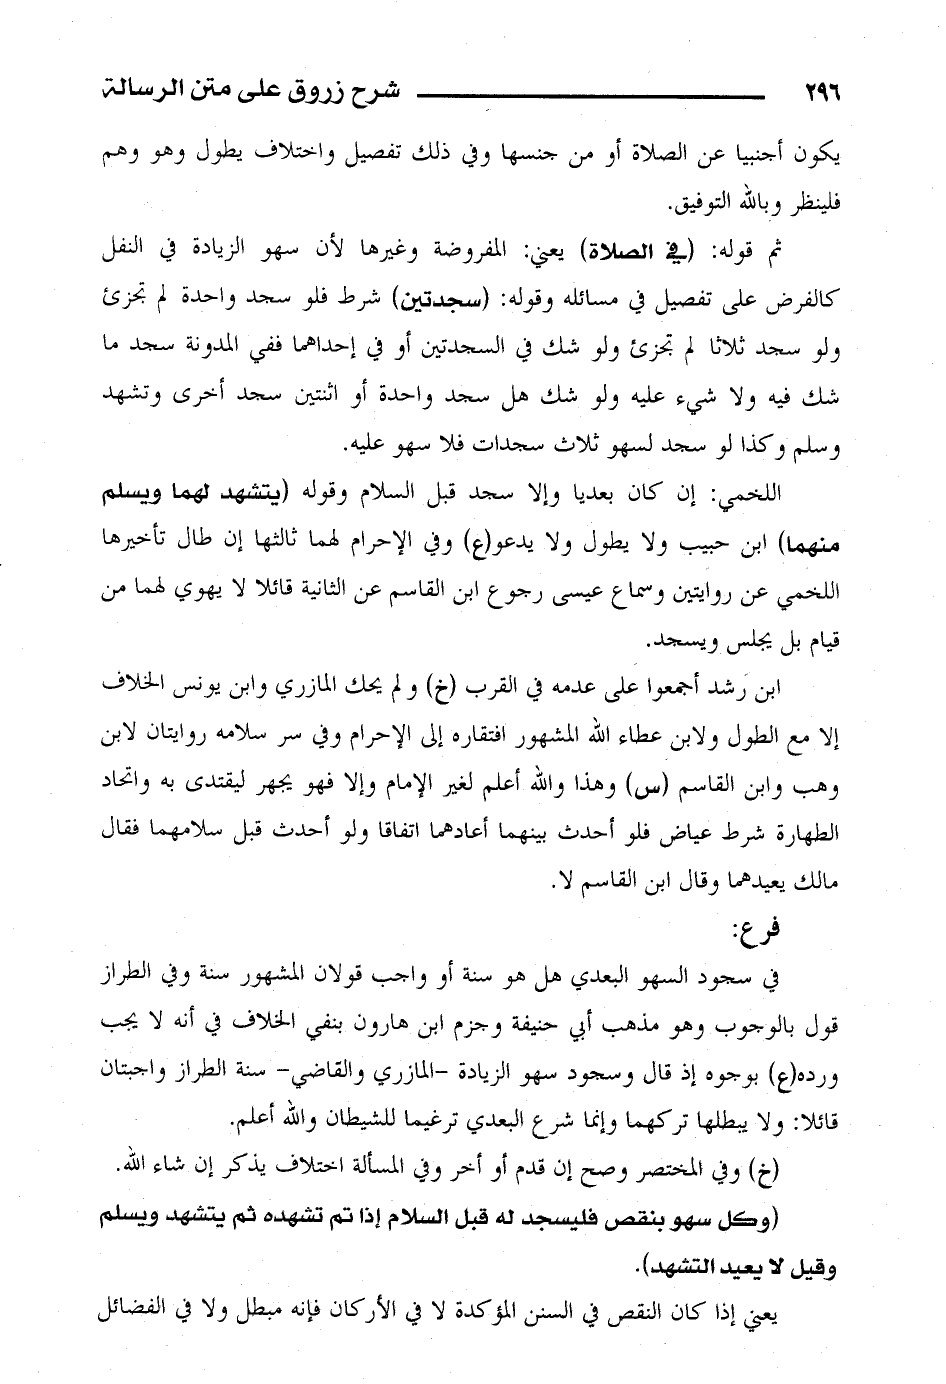 ٢٩٦ شرح زروق على متن الرسالة
يكون أجنبيا عن الصلاة أو من جنسها وفي ذلك تفصيل واختلاف يطول وهو وهم
فلينظر وبالله التوفيق.
ثم قوله: (في الصلاة) يعني: المفروضة وغيرها لأن سهو الزيادة في النفل
كالفرض على تفصيل في مسائله وقوله: (سجدتين) شرط فلو سجد واحدة لم تجزئ
ولو سجد ثلاثا لم تجزئ ولو شك في السجدتين أو في إحداهما ففي المدونة سجد ما
شك فيه ولا شيء عليه ولو شك هل سجد واحدة أو اثنتين سجد أخرى وتشهد
وسلم وكذا لو سجد لسهو ثلاث سجدات فلا سهو عليه.
اللخمي: إن كان بعديا وإلا سجد قبل السلام وقوله (يتشهد لهما ويسلم
منهما) ابن حبيب ولا يطول ولا يدعو(ع) وفي الإحرام لهما ثالثها إن طال تأخيرها
اللخمي عن روايتين وسماع عيسى رجوع ابن القاسم عن الثانية قائلا لا يهوي لهما من
قيام بل يجلس ويسجد.
ابن رشد أجمعوا على عدمه في القرب (خ) ولم يحك المازري وابن يونس الخلاف
إلا مع الطول ولابن عطاء الله المشهور افتقاره إلى الإحرام وفي سر سلامه روايتان لابن
وهب وابن القاسم (س) وهذا والله أعلم لغير الإمام وإلا فهو يجهر ليقتدى به واتحاد
الطهارة شرط عياض فلو أحدث بينهما أعادهما اتفاقا ولو أحدث قبل سلامهما فقال
مالك يعيدهما وقال ابن القاسم لا.
فرع:
في سجود السهو البعدي هل هو سنة أو واجب قولان المشهور سنة وفي الطراز
قول بالوجوب وهو مذهب أبي حنيفة وجزم ابن هارون بنفي الخلاف في أنه لا يجب
ورده(ع) بوجوه إذ قال وسجود سهو الزيادة -المازري والقاضي- سنة الطراز واجبتان
قائلا: ولا يبطلها تركهما وإنما شرع البعدي ترغيما للشيطان والله أعلم.
(خ) وفي المختصر وصح إن قدم أو أخر وفي المسألة اختلاف يذكر إن شاء الله.
(وكل سهو بنقص فليسجد له قبل السلام إذا تم تشهده ثم يتشهد ويسلم
وقيل لا يعيد التشهد).
يعني إذا كان النقص في السنن المؤكدة لا في الأركان فإنه مبطل ولا في الفضائل